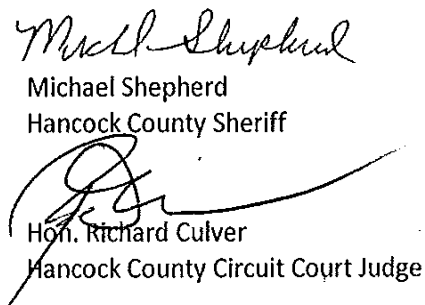 Michael Shepherd
Michael Shepherd
Hancock County Sheriff
Hon. Richard Culver
Hancock County Circuit Court Judge